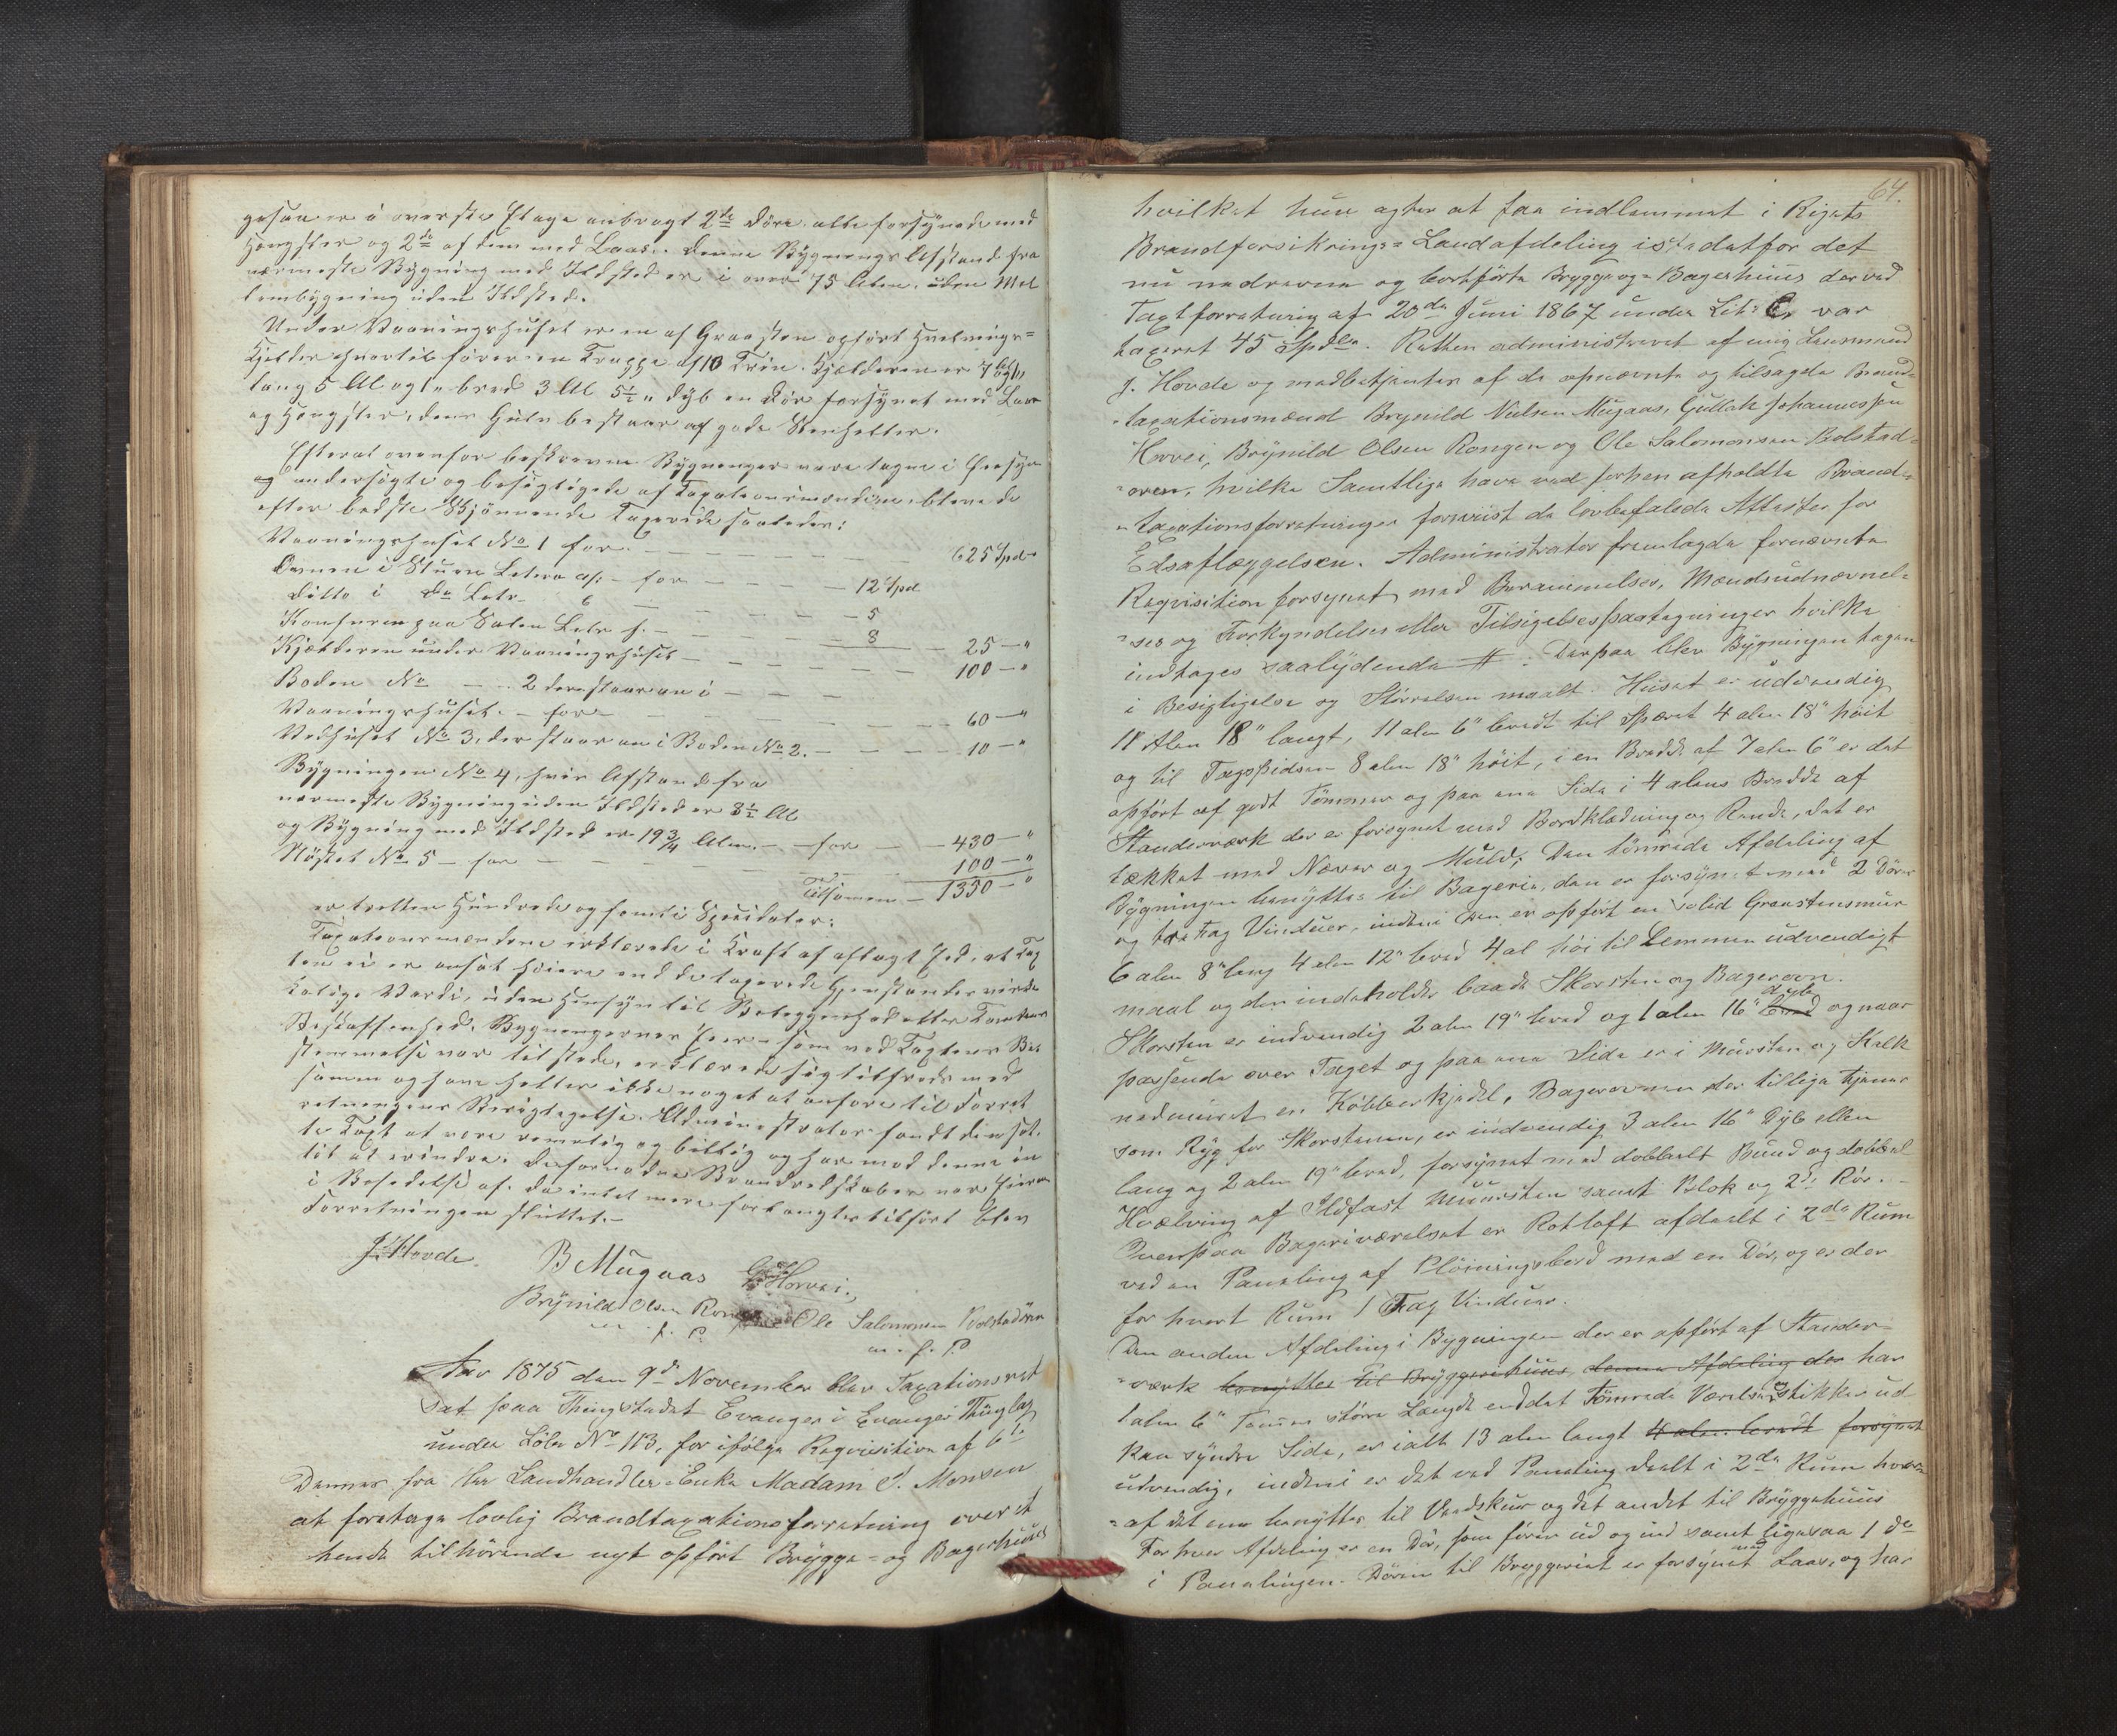 gesaa er i øverste Etage anbragt 2de Døre alle forsynede med
Hængsler og 2de af dem med Laas. Denne Bygnings Afstand fra
nærmeste Bygning med Ildsted er i over 75 Alen, uden Mel
lembygning uden Ildsted.
Under Vaaningshuset er en af Graasten opført Hvælvings=
Kjelder hvortil fører en Trappe af 10 Trin. Kjælderen er 7 Al
lang 5 Al og " bred 3 Al 5½ " dyb en Dør forsynet med Laas
og Hængsler, dens Gulv bestaar af gode Stenheller.
Efterat ovenfor beskrevne Bygninger vare tagne i Øiesyn
og undersøgte og besigtigede af Taxationsmændene, bleve de
efter bedste Skjønnende taxerede saaledes:
Vaaningshuset No 1 for — 625 Spd
Ovnen i Stuen Litera a/: for — 12 Spd
Ditto i Do Litr. b — 5
Komfuren paa Salen Litr f. — 8 — 25 — "
Kjælderen under Vaaningshuset — 100 — "
Boden No 2 der staar an i
Vaaningshuset. for — 60 — "
Vedhuset No 3, der staar an i Boden No 2. — 10 — "
Bygningen No 4, hvis Afstand fra
nærmeste Bygning uden Ildsted er 3½ Al
og Bygning med Ildsted er 19¾ Alen. — for — 430 — "
Nøstet No 5 — for — 100 — "
Tilsamen — 1350 — "
er tretten Hundrede og femti Speciedaler:
Taxationsmændene erklærede i Kraft af aflagt Eed, at Tax
ten ei er ansat høiere end de taxerede Gjenstandes virke
kelige Værdi, uden Hensyn til Beliggenhed eller Tomtens
Beskaffenhed. Bygningernes Eier som ved Taxtens Be=
stemmelse var tilstede, erklærede sig tilfreds med
samme og have heller ikke noget at anføre til Forret
retningens Berigtigelse. Administrator fandt den sat
te Taxt at være rimelig og billig og har mod denne in
tet at erindre. De fornødne Brandredskaber var Eieren
i Besiddelse af. Da intet mere forlangtes tilført blev
Forretningen sluttet. —
J. Hovde. B Mügaas G J Horvei.
Brynild Olsen Rongen Ole Salomonsen Bolstadøren
m. f. P.
m. f. P.
Aar 1875 den 9de November blev Taxationsret
sat paa Thingstedet Evanger i Evanger Thinglag
under Løbe No 113, for ifølge Reqvisition af 6te
Dennes fra her Landhandler-Enke Madam S. Monsen
at foretage lovlig Brandtaxationsforretning over et
hende tilhørende nyt opført Brygge- og Bagerhuus
64.
hvilket hun agter at faa indlemmet i Rigets
Brandforsikrings= Landafdeling istedetfor det
nu nedrevne og bortførte Brygge og= Bagerhuus der ved
Taxtforretning af 20de Juni 1867 under Lit: C, var
taxeret 45 Spdlr. Retten administreret af mig Lensmand
J. Hovde og medbetjentes af de opnævnte og tilsagde Brand=
taxationsmænd Brynild Nielsen Mügaas, Gullek Johannessen
Horvei, Brynild Olsen Rongen og Ole Salomonsen Bolstad=
øren, hvilke Samtlige have ved forhen afholdte Brand=
taxationsforretninger foreviist de lovbefalede Attester for
Edsaflæggelsen. Administrator fremlagde fornævnte
Reqvisition forsynet med Berammelses, Mændsudnævnel=
ses og Forkyndelses eller Tilsigelsespaategninger hvilke
indtages saalydende # : Derpaa blev Bygningen tagen
i Besigtigelse og Størrelsen maalt. Huset er udvendig
11 Alen 18" langt, 11 alen 6" bredt til Spæret 4 alen 18" høit
og til Tagspidsen 8 alen 18" høit, i en Bredde af 7 alen 6" er det
opført af godt Tømmer og paa ene Side i 4 alens Bredde af
Standerværk der er forsynet med Bordklædning og Rende, det er
tækket med Næver og Muld; Den tømrede Afdeling af
Bygningen benyttes til Bageri, den er forsynet med 2 Døre
og tre Fag Vinduer, indeni den er opført en solid Graastensmur
6 alen 8" lang 4 alen 12" bred 4 al høi til Lemmen udvendigt
maal og den indeholder baade Skorsten og Bagerovn.
Skorsten er indvendig 2 alen 19" bred og 1 alen 16" bred dyb og naar
passende over Taget og paa ene Side er i Mursten og Kalk
nedmuret en Kobberkjedel, Bagerovnen der tillige tjener
som Ryg for Skorstenen, er indvendig 3 alen 16" Dyb eller
lang og 2 alen 19" bred, forsynet med dobbelt Bund og dobbel
Hvælving af Ildfast Muursten samt Blok og 2de Rør. —
Ovenpaa Bageriværelset er Rotloft afdeelt i 2de Rum
ved en Paneling af Pløiningsbord med en Dør, og er der
for hvert Rum 1 Fag Vinduer.
Den anden Afdeling i Bygningen der er opført af Stander=
værk benyttes til Bryggerihuus, denne Afdeling der har
1 alen 6" Tommer større Længde end det Tømrede Værelse og stikker ud
paa søndre Side, er ialt 13 alen langt 4 alen bredt forsynet
udvendig, indeni er det ved Paneling deelt i 2de Rum hvor=
af det ene benyttes til Vedskur og det andet til Bryggehuus
For hver Afdeling er en Dør, som fører ud og ind samt ligesaa 1 do
i Panelingen. Døren til Bryggeriet er forsynet med Laas, og har